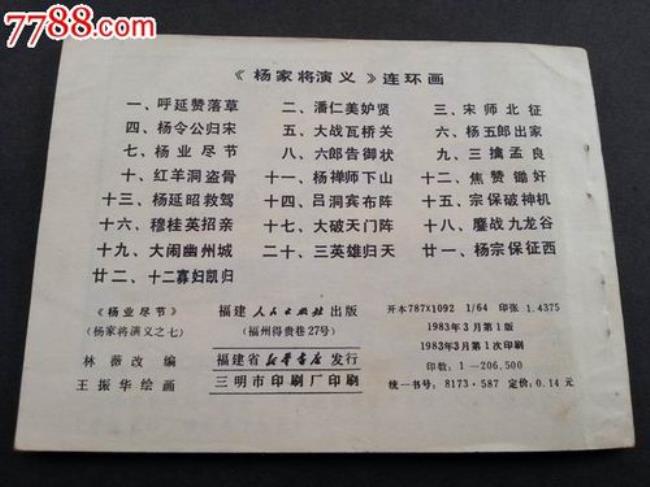 7788.com
《杨家将演义》连环画
一、呼延赞落草 二、潘仁美妒贤 三、宋师北征
四、杨令公归宋 五、大战瓦桥关 六、杨五郎出家
七、杨业尽节 八、六郎告御状 九、三擒孟良
十、红羊洞盗骨 十一、杨禅师下山 十二、焦赞锄奸
十三、杨延昭救驾 十四、吕洞宾布阵 十五、宗保破神机
十六、穆桂英招亲 十七、大破天门阵 十八、鏖战九龙谷
十九、大闹幽州城 二十、三英雄归天 廿一、杨宗保征西
廿二、十二寡妇凯归
《杨业尽节》
(杨家将演义之七)
林薇改编
王振华绘画
福建人民出版社出版
(福州得贵巷27号)
福建省新华书店发行
三明市印刷厂印刷
开本787×1092 1/64 印张 1.4375
1983年3月第1版
1983年3月第1次印刷
印数:1—206,500
统一书号:8173·587 定价:0.14元